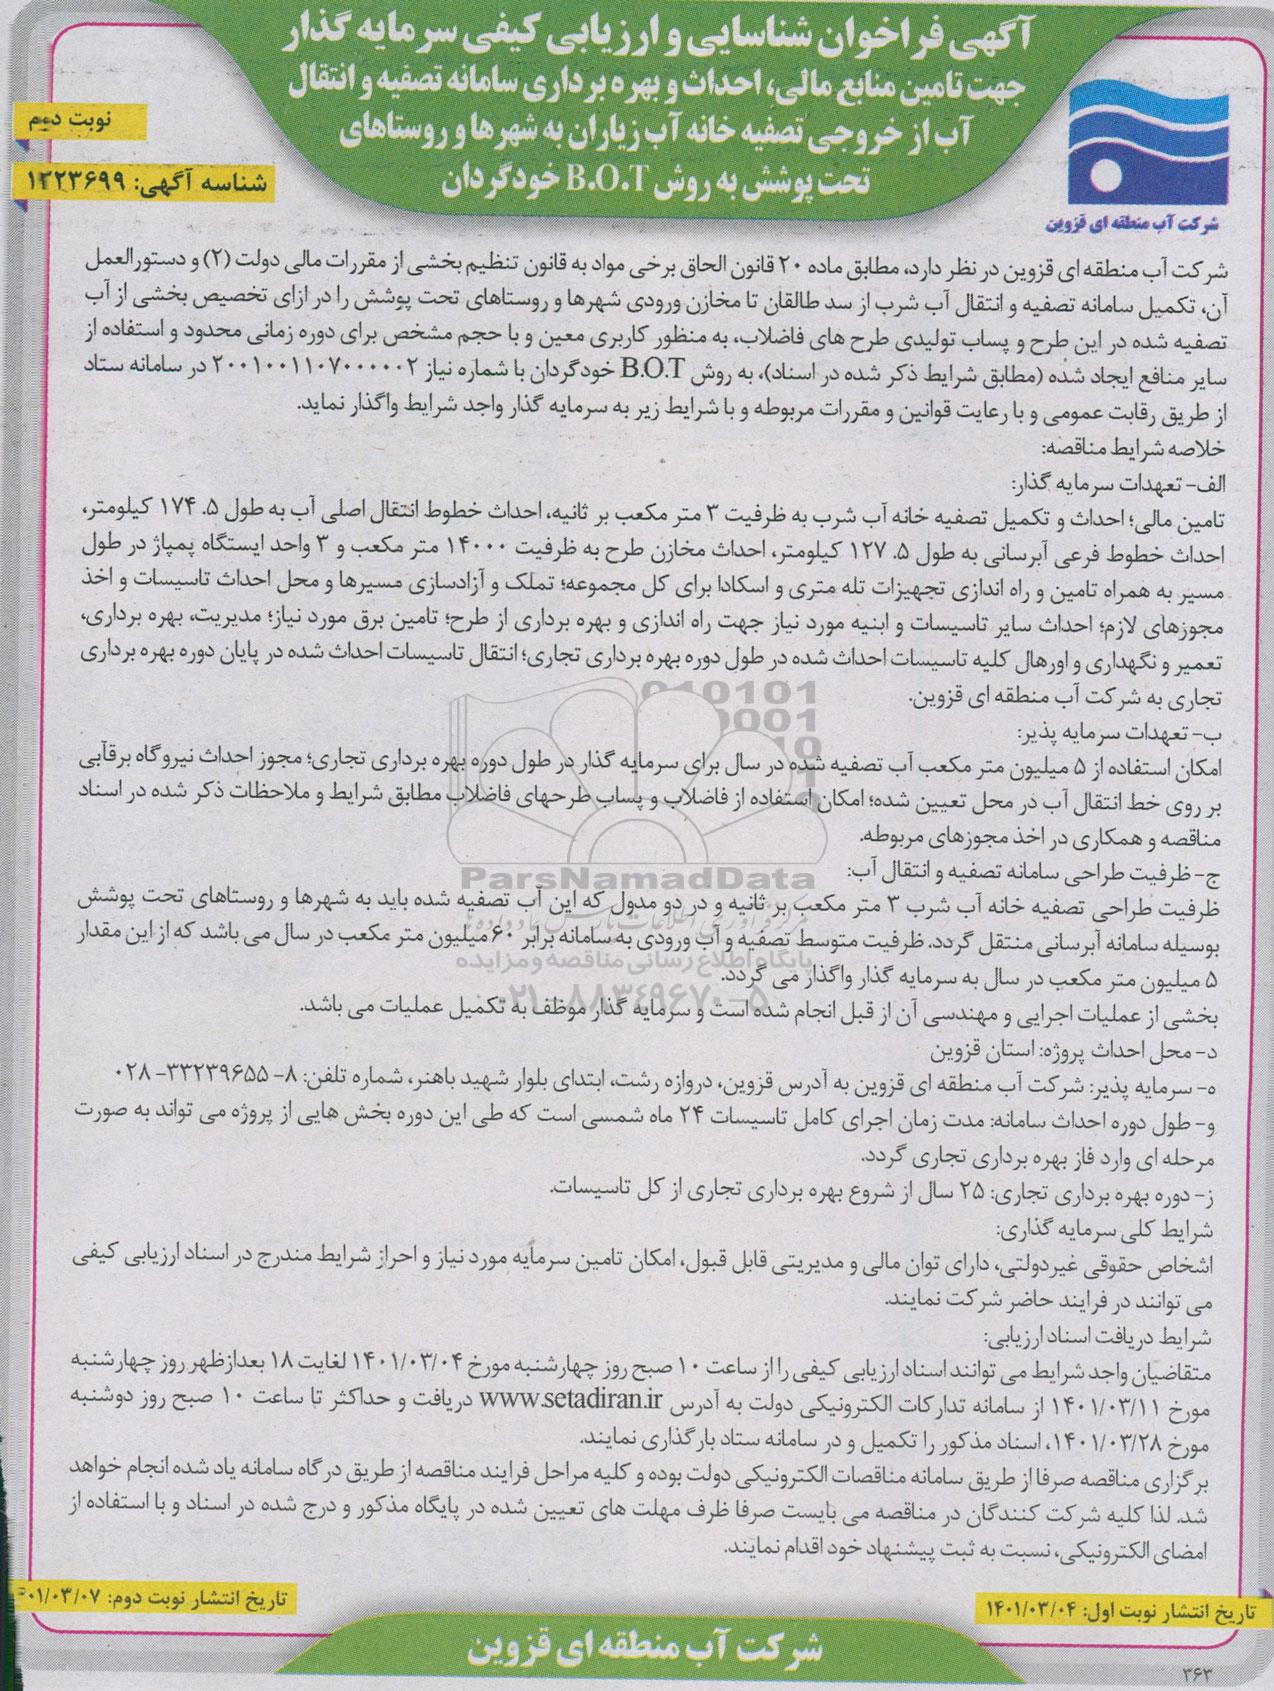 آگهی فراخوان شناسایی و ارزیابی کیفی سرمایه گذار
جهت تامین منابع مالی، احداث و بهره برداری سامانه تصفیه و انتقال
آب از خروجی تصفیه خانه آب زیاران به شهرها و روستاهای
تحت پوشش به روش B.O.T خودگردان
نوبت دوم
شناسه آگهی: ۱۳۲۳۶۹۹
شرکت آب منطقه ای قزوین
شرکت آب منطقه ای قزوین در نظر دارد، مطابق ماده ۲۰ قانون الحاق برخی مواد به قانون تنظیم بخشی از مقررات مالی دولت (۲) و دستورالعمل
آن، تکمیل سامانه تصفیه و انتقال آب شرب از سد طالقان تا مخازن ورودی شهرها و روستاهای تحت پوشش را در ازای تخصیص بخشی از آب
تصفیه شده در این طرح و پساب تولیدی طرح های فاضلاب، به منظور کاربری معین و با حجم مشخص برای دوره زمانی محدود و استفاده از
سایر منافع ایجاد شده (مطابق شرایط ذکر شده در اسناد)، به روش B.O.T خودگردان با شماره نیاز ۲۰۰۱۰۰۱۱۰۷۰۰۰۰۰۲ در سامانه ستاد
از طریق رقابت عمومی و با رعایت قوانین و مقررات مربوطه و با شرایط زیر به سرمایه گذار واجد شرایط واگذار نماید.
خلاصه شرایط مناقصه:
الف- تعهدات سرمایه گذار:
تامین مالی؛ احداث و تکمیل تصفیه خانه آب شرب به ظرفیت ۳ متر مکعب بر ثانیه، احداث خطوط انتقال اصلی آب به طول ۱۷۴.۵ کیلومتر،
احداث خطوط فرعی آبرسانی به طول ۱۲۷.۵ کیلومتر، احداث مخازن طرح به ظرفیت ۱۴۰۰۰ متر مکعب و ۳ واحد ایستگاه پمپاژ در طول
مسیر به همراه تامین و راه اندازی تجهیزات تله متری و اسکادا برای کل مجموعه؛ تملک و آزادسازی مسیرها و محل احداث تاسیسات و اخذ
مجوزهای لازم؛ احداث سایر تاسیسات و ابنیه مورد نیاز جهت راه اندازی و بهره برداری از طرح؛ تامین برق مورد نیاز؛ مدیریت، بهره برداری،
تعمیر و نگهداری و اورهال کلیه تاسیسات احداث شده در طول دوره بهره برداری تجاری؛ انتقال تاسیسات احداث شده در پایان دوره بهره برداری
تجاری به شرکت آب منطقه ای قزوین.
ب- تعهدات سرمایه پذیر:
امکان استفاده از ۵ میلیون متر مکعب آب تصفیه شده در سال برای سرمایه گذار در طول دوره بهره برداری تجاری؛ مجوز احداث نیروگاه برقآبی
بر روی خط انتقال آب در محل تعیین شده؛ امکان استفاده از فاضلاب و پساب طرحهای فاضلاب مطابق شرایط و ملاحظات ذکر شده در اسناد
مناقصه و همکاری در اخذ مجوزهای مربوطه.
ج- ظرفیت طراحی سامانه تصفیه و انتقال آب:
ParsNamadData
ظرفیت طراحی تصفیه خانه آب شرب ۳ متر مکعب بر ثانیه و در دو مدول که این آب تصفیه شده باید به شهرها و روستاهای تحت پوشش
بوسیله سامانه آبرسانی منتقل گردد. ظرفیت متوسط تصفیه و آب ورودی به سامانه برابر ۶۰ میلیون متر مکعب در سال می باشد که از این مقدار
پایگاه اطلاع رسانی مناقصه و مزایده
۵ میلیون متر مکعب در سال به سرمایه گذار واگذار می گردد.
۰۲۱-۸۸۳۴۹۶۷۰-۵
بخشی از عملیات اجرایی و مهندسی آن از قبل انجام شده است و سرمایه گذار موظف به تکمیل عملیات می باشد.
د- محل احداث پروژه: استان قزوین
ه- سرمایه پذیر: شرکت آب منطقه ای قزوین به آدرس قزوین، دروازه رشت، ابتدای بلوار شهید باهنر، شماره تلفن: ۸- ۳۳۲۳۹۶۵۵- ۰۲۸
و- طول دوره احداث سامانه: مدت زمان اجرای کامل تاسیسات ۲۴ ماه شمسی است که طی این دوره بخش هایی از پروژه می تواند به صورت
مرحله ای وارد فاز بهره برداری تجاری گردد.
ز- دوره بهره برداری تجاری: ۲۵ سال از شروع بهره برداری تجاری از کل تاسیسات.
شرایط کلی سرمایه گذاری:
اشخاص حقوقی غیردولتی، دارای توان مالی و مدیریتی قابل قبول، امکان تامین سرمایه مورد نیاز و احراز شرایط مندرج در اسناد ارزیابی کیفی
می توانند در فرایند حاضر شرکت نمایند.
شرایط دریافت اسناد ارزیابی:
متقاضیان واجد شرایط می توانند اسناد ارزیابی کیفی را از ساعت ۱۰ صبح روز چهارشنبه مورخ ۱۴۰۱/۰۳/۰۴ لغایت ۱۸ بعدازظهر روز چهارشنبه
مورخ ۱۴۰۱/۰۳/۱۱ از سامانه تدارکات الکترونیکی دولت به آدرس www.setadiran.ir دریافت و حداکثر تا ساعت ۱۰ صبح روز دوشنبه
مورخ ۱۴۰۱/۰۳/۲۸، اسناد مذکور را تکمیل و در سامانه ستاد بارگذاری نمایند.
برگزاری مناقصه صرفا از طریق سامانه مناقصات الکترونیکی دولت بوده و کلیه مراحل فرایند مناقصه از طریق درگاه سامانه یاد شده انجام خواهد
شد. لذا کلیه شرکت کنندگان در مناقصه می بایست صرفا ظرف مهلت های تعیین شده در پایگاه مذکور و درج شده در اسناد و با استفاده از
امضای الکترونیکی، نسبت به ثبت پیشنهاد خود اقدام نمایند.
تاریخ انتشار نوبت اول: ۱۴۰۱/۰۳/۰۴
تاریخ انتشار نوبت دوم: ۰۱/۰۳/۰۷
شرکت آب منطقه ای قزوین
۳۶۳